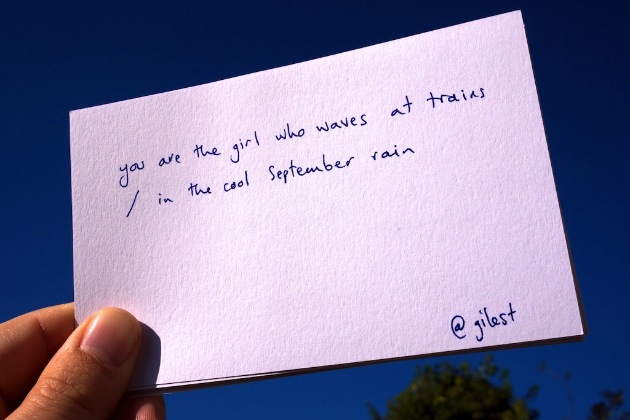 you are the girl who waves at trains
/ in the cool September rain
@gilest